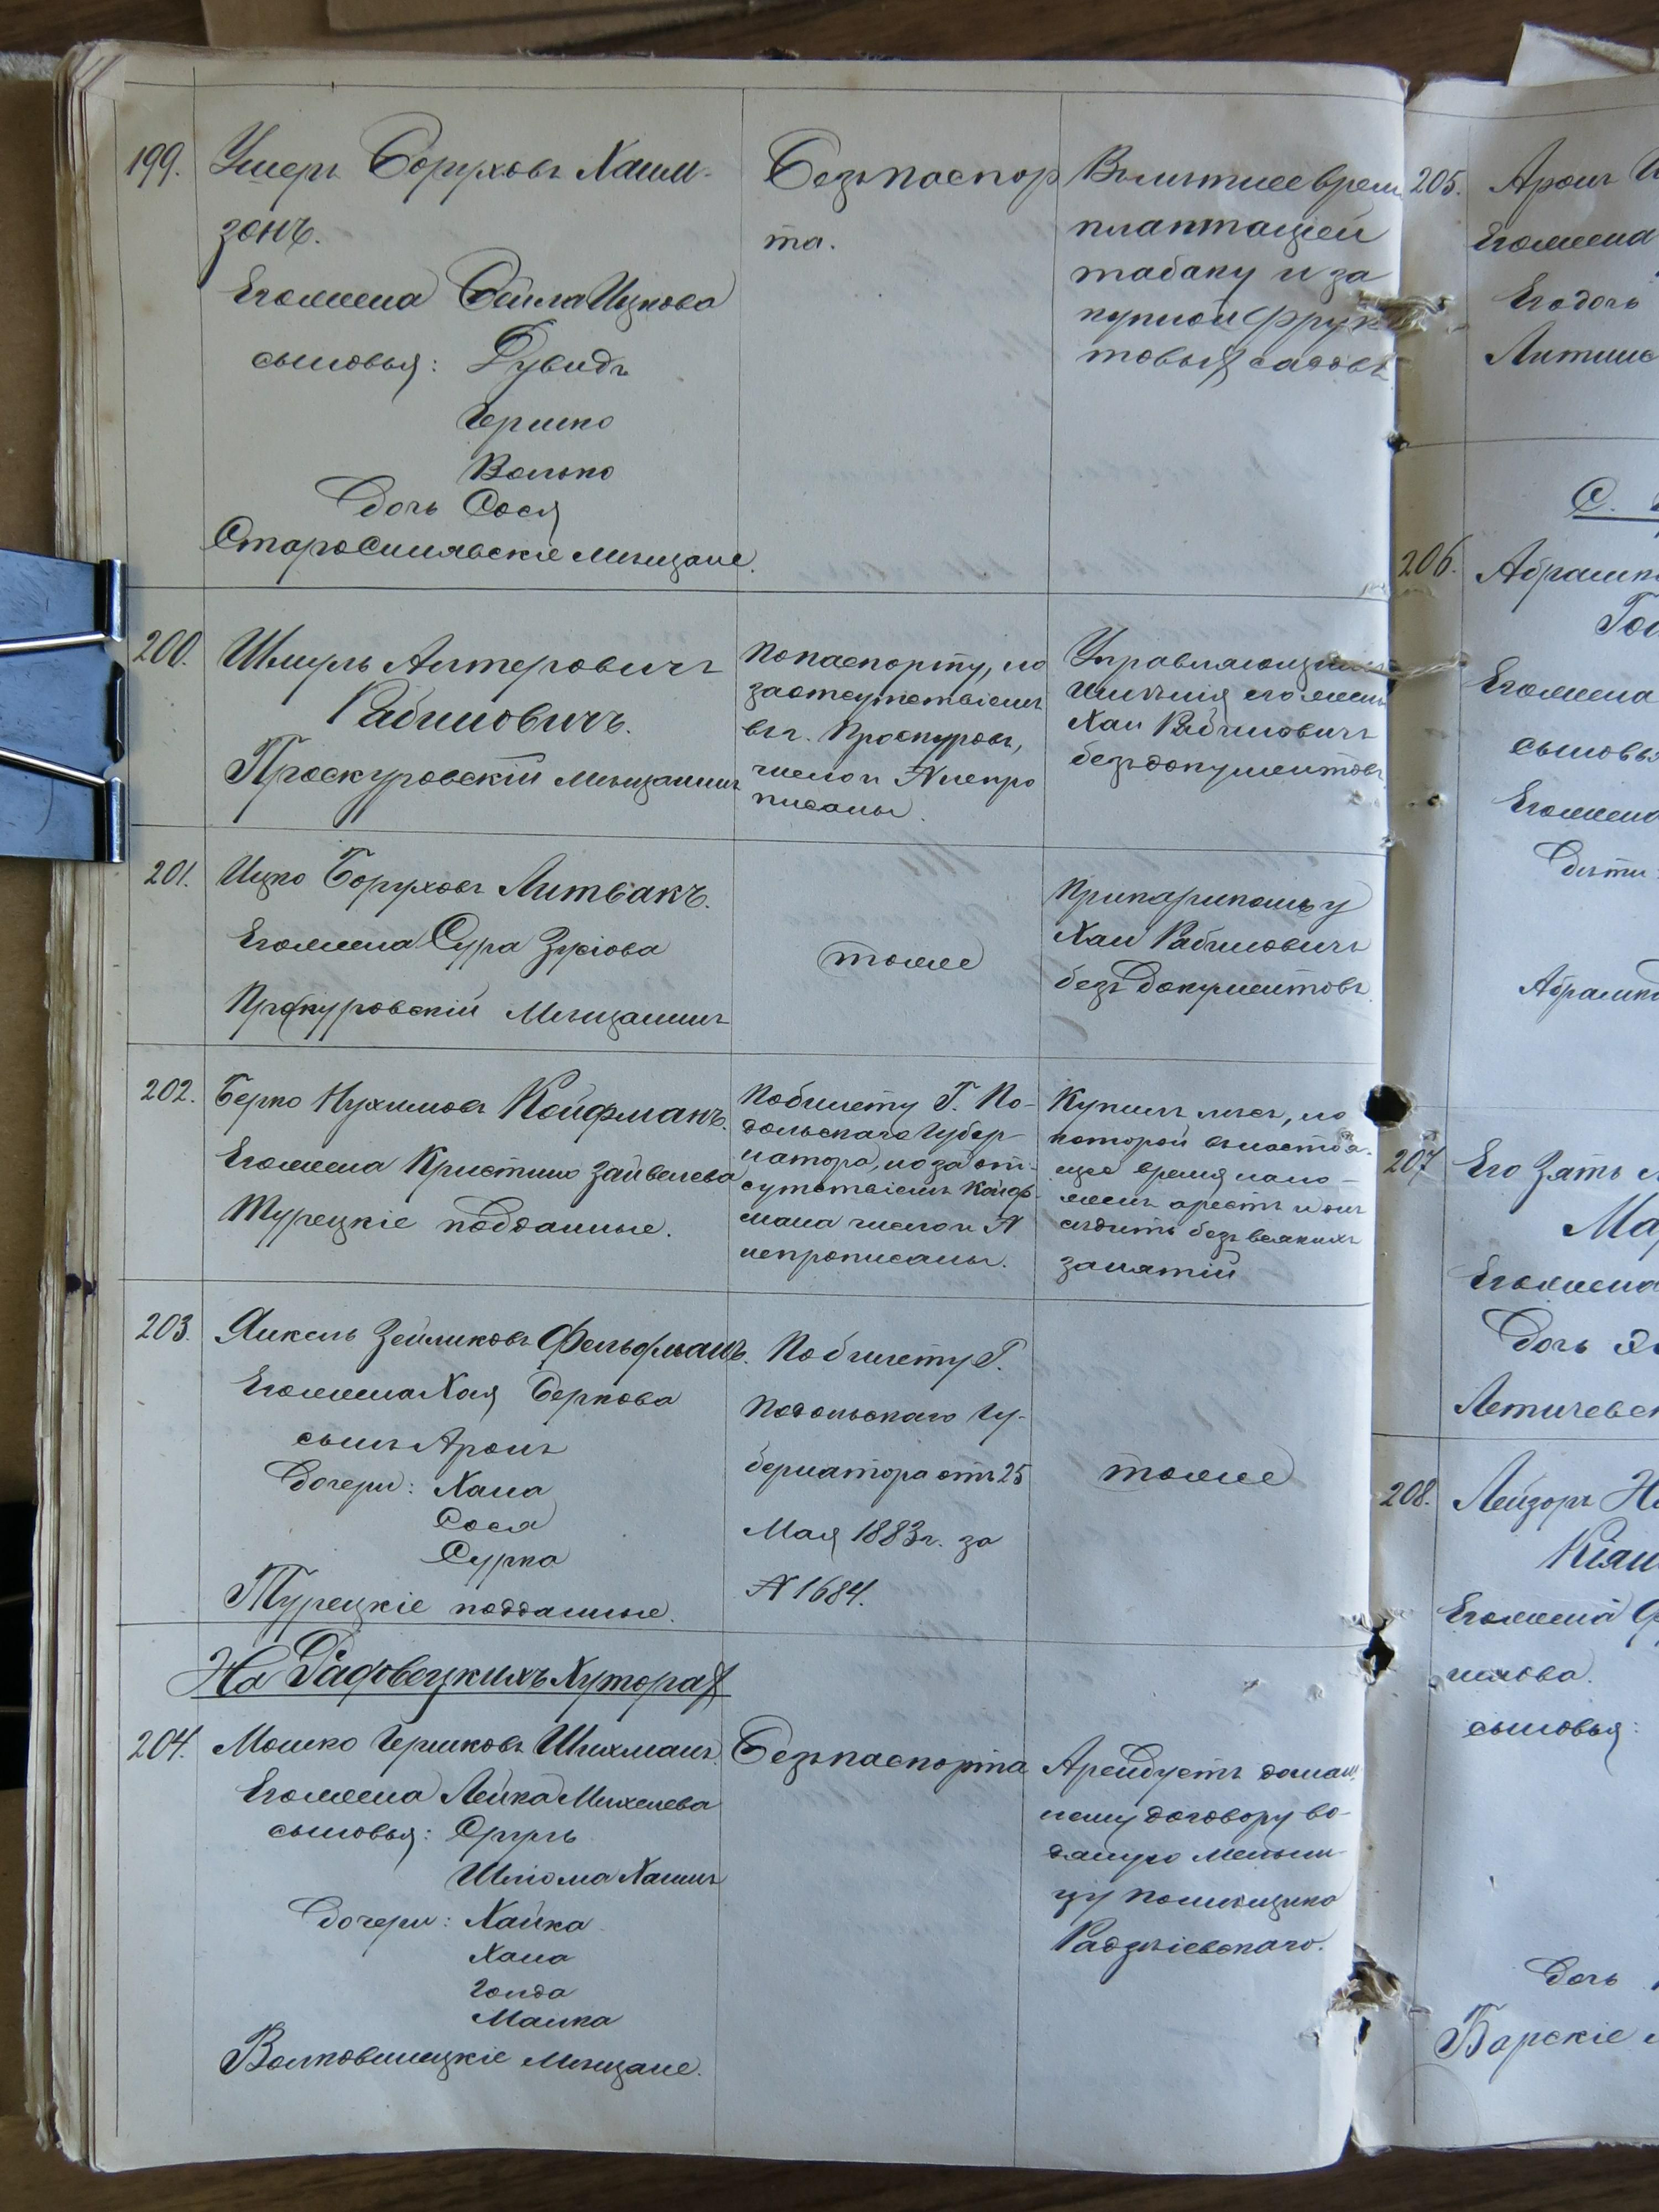 199.
Ушеръ Боруховъ Хаим-
зонъ.
Его жена Бейла Ицкова
сыновья: Дувидъ
Гершко
Волько
Дочь Сося
Старосинявскіе Мѣщане.
Безъ паспор
та.
Въ лѣтнее время
плантацей
табаку и за
купкой фрук
товыя садовъ
200.
Шмуль Алтеровичъ
Рабиновичъ.
Проскуровскій Мѣщанинъ
По паспорту, но
за отсутствіемъ
въ г. Проскуровъ,
число и № непро
писаны.
Управляющій
имѣнія его жены
Хаи Рабиновичъ
безъ документовъ
201.
Ицко Боруховъ Литвакъ.
Его жена Сура Зусіова
Проскуровскій Мѣщанинъ
тоже
Хаи Рабиновичъ
безъ документовъ
202.
Берко Нухимовъ Койфманъ.
Его жена Кристина Зайвелева
Турецкіе подданные.
По билету Г. По-
дольскаго Губер
натора, но за от-
сутствіемъ Койф-
мана число и №
непрописаны.
Купилъ лѣсъ, на
которой въ настоя-
щее время нало-
женъ арестъ и онъ
сидитъ безъ всякихъ
занятій
203.
Янкель Зейликовъ Фельдманъ.
Его жена Хая Беркова
сынъ Аронъ
Дочери: Хана
Сося
Сурка
Турецкіе подданные.
По билету Г.
Подольскаго Гу-
бернатора отъ 25
Мая 1883 г. за
№ 1684.
тоже
На Радовецкихъ Хуторах
204.
Мошко Гершковъ Шихманъ
Его жена Лейка Михелева
сыновья: Сруль
Шлiома Хаимъ
Дочери: Хайка
Хана
Голда
Малка
Волковинецкіе Мѣщане.
Безъ паспорта
Арендуетъ домаш
нему договору во-
дяную Мельни-
цу помѣщика
Радзѣіевскаго.
205.
Аронъ
Его жена
Его дочь
С.
206.
Абрамко
Его жена
сыновья
Его жена
Дѣти:
Абрамко
207
Его Зять
Его жена
Дочь
Летичевск
208.
Лейзоръ
Его жена
сыновья:
Дочь
Барскіе